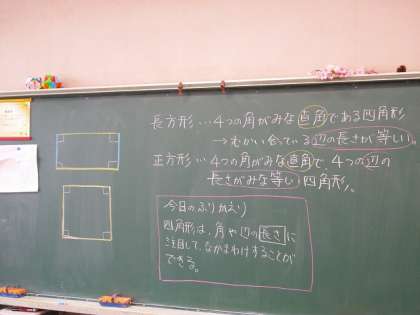 長方形…4つの角がみな直角である四角形
→むかい合っている辺の長さが等しい。
正方形…4つの角がみな直角で4つの辺の
長さがみな等しい四角形。
今日のふりかえり
四角形は、角や辺の長さに
注目して、なかまわけすることが
できる。